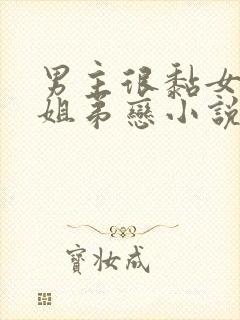 男主很黏女
姐弟戀小說
寶妝成